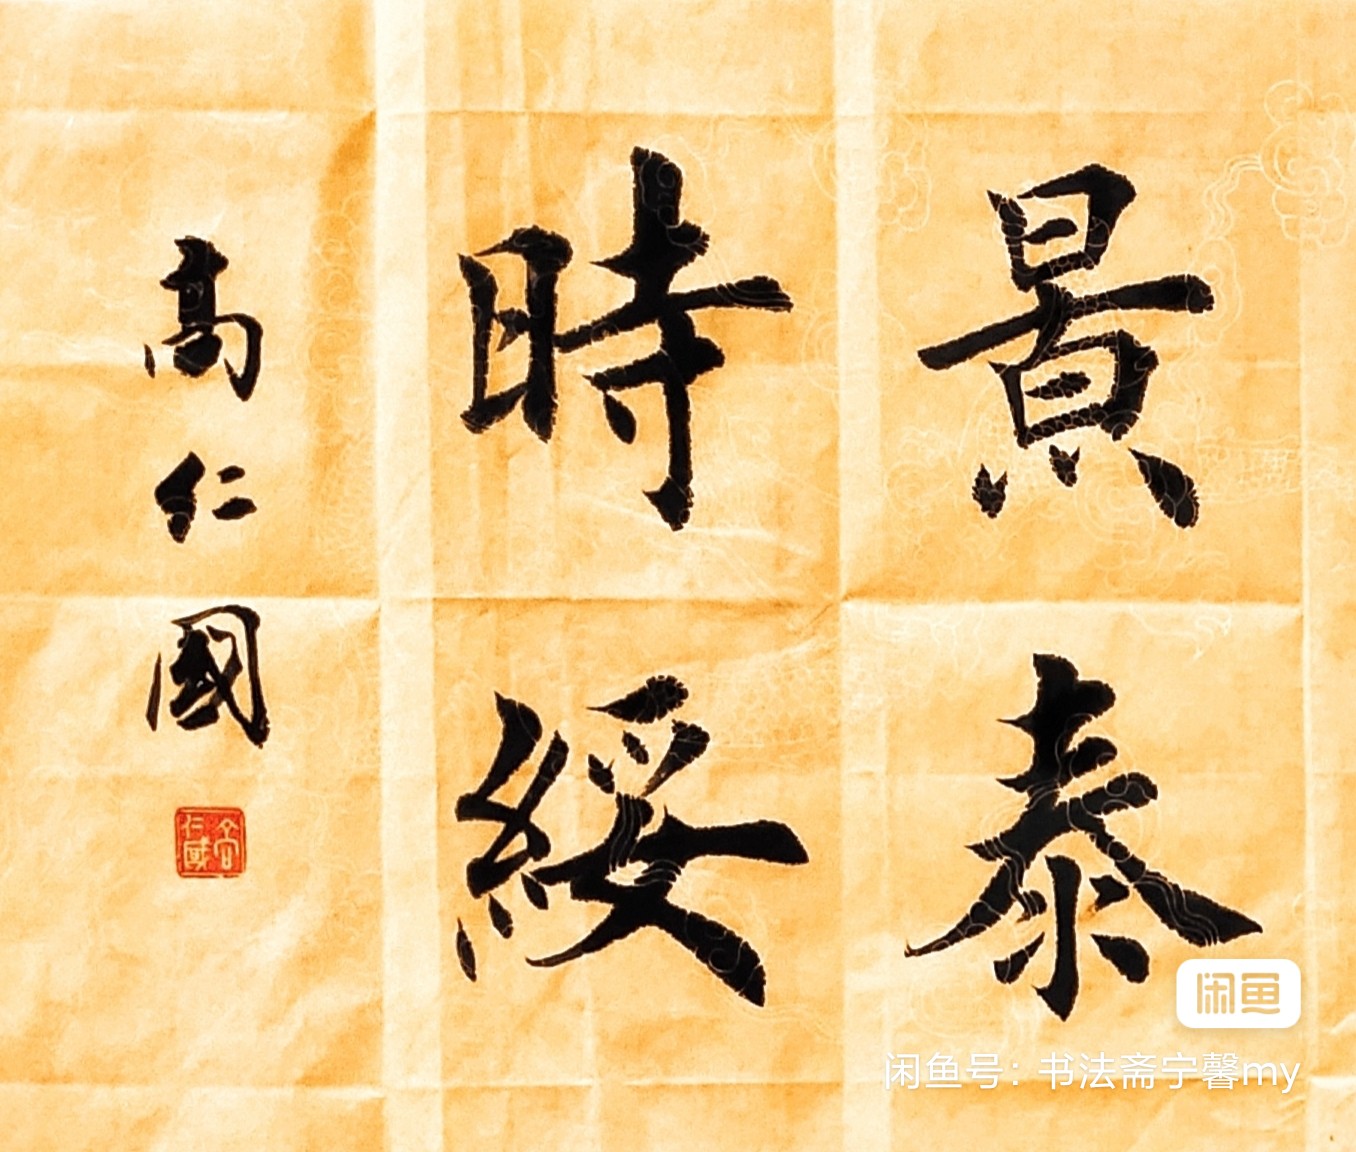 景泰
時綏
高仁國
高仁國
闲鱼
闲鱼号：书法斋宁馨my